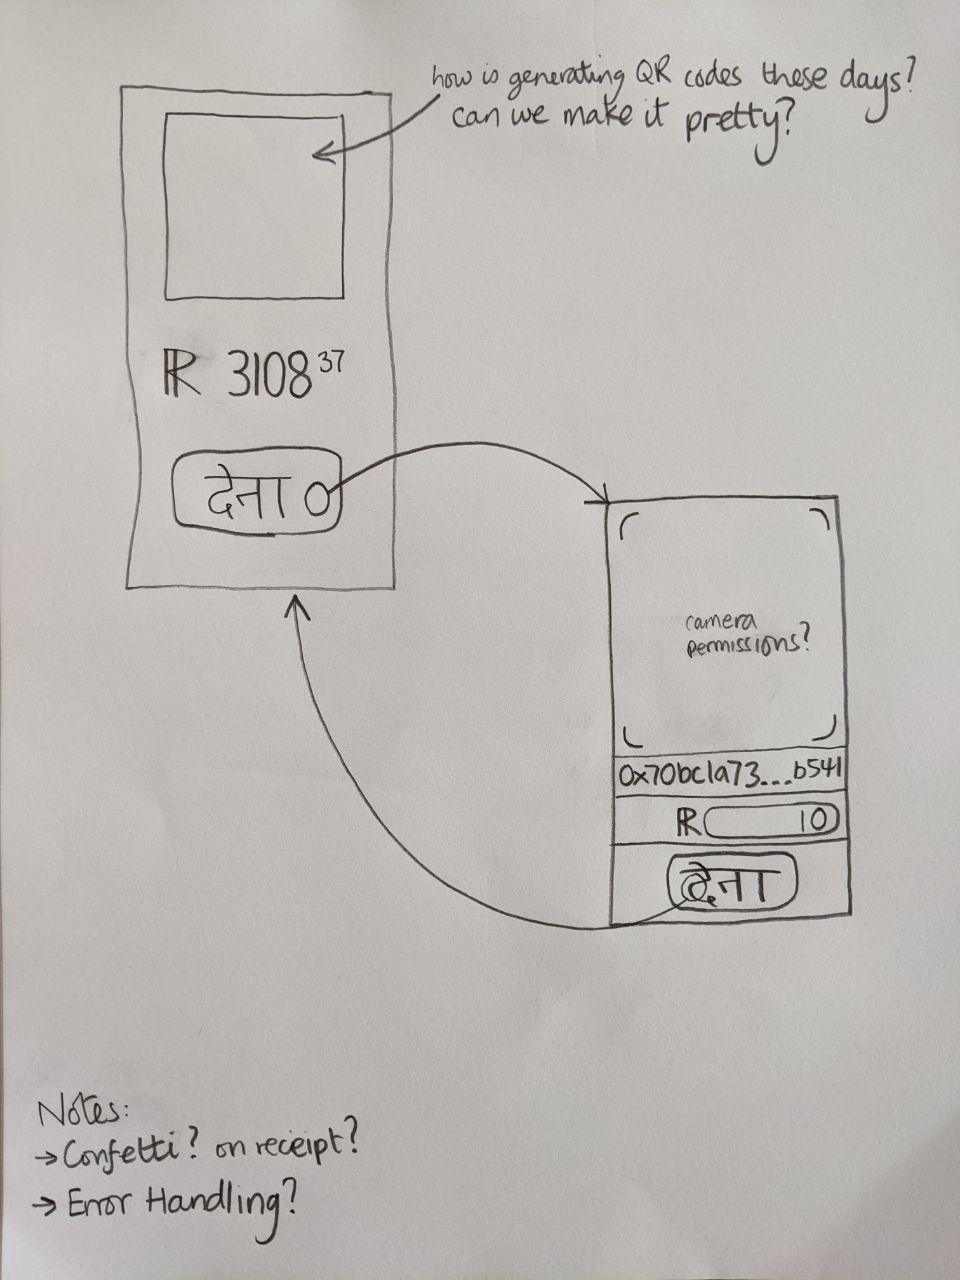 how is generating QR codes these days?
can we make it pretty?
R 3108 37
देना
camera
permissions?
0x70bc1a73...b541
R 10
देना
Notes:
→ Confetti? on receipt?
→ Error Handling?